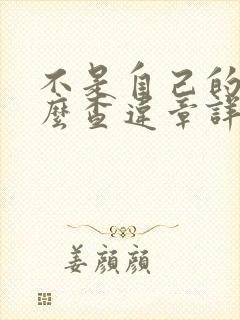 不是自己的
麼查違章詳
姜顏顏